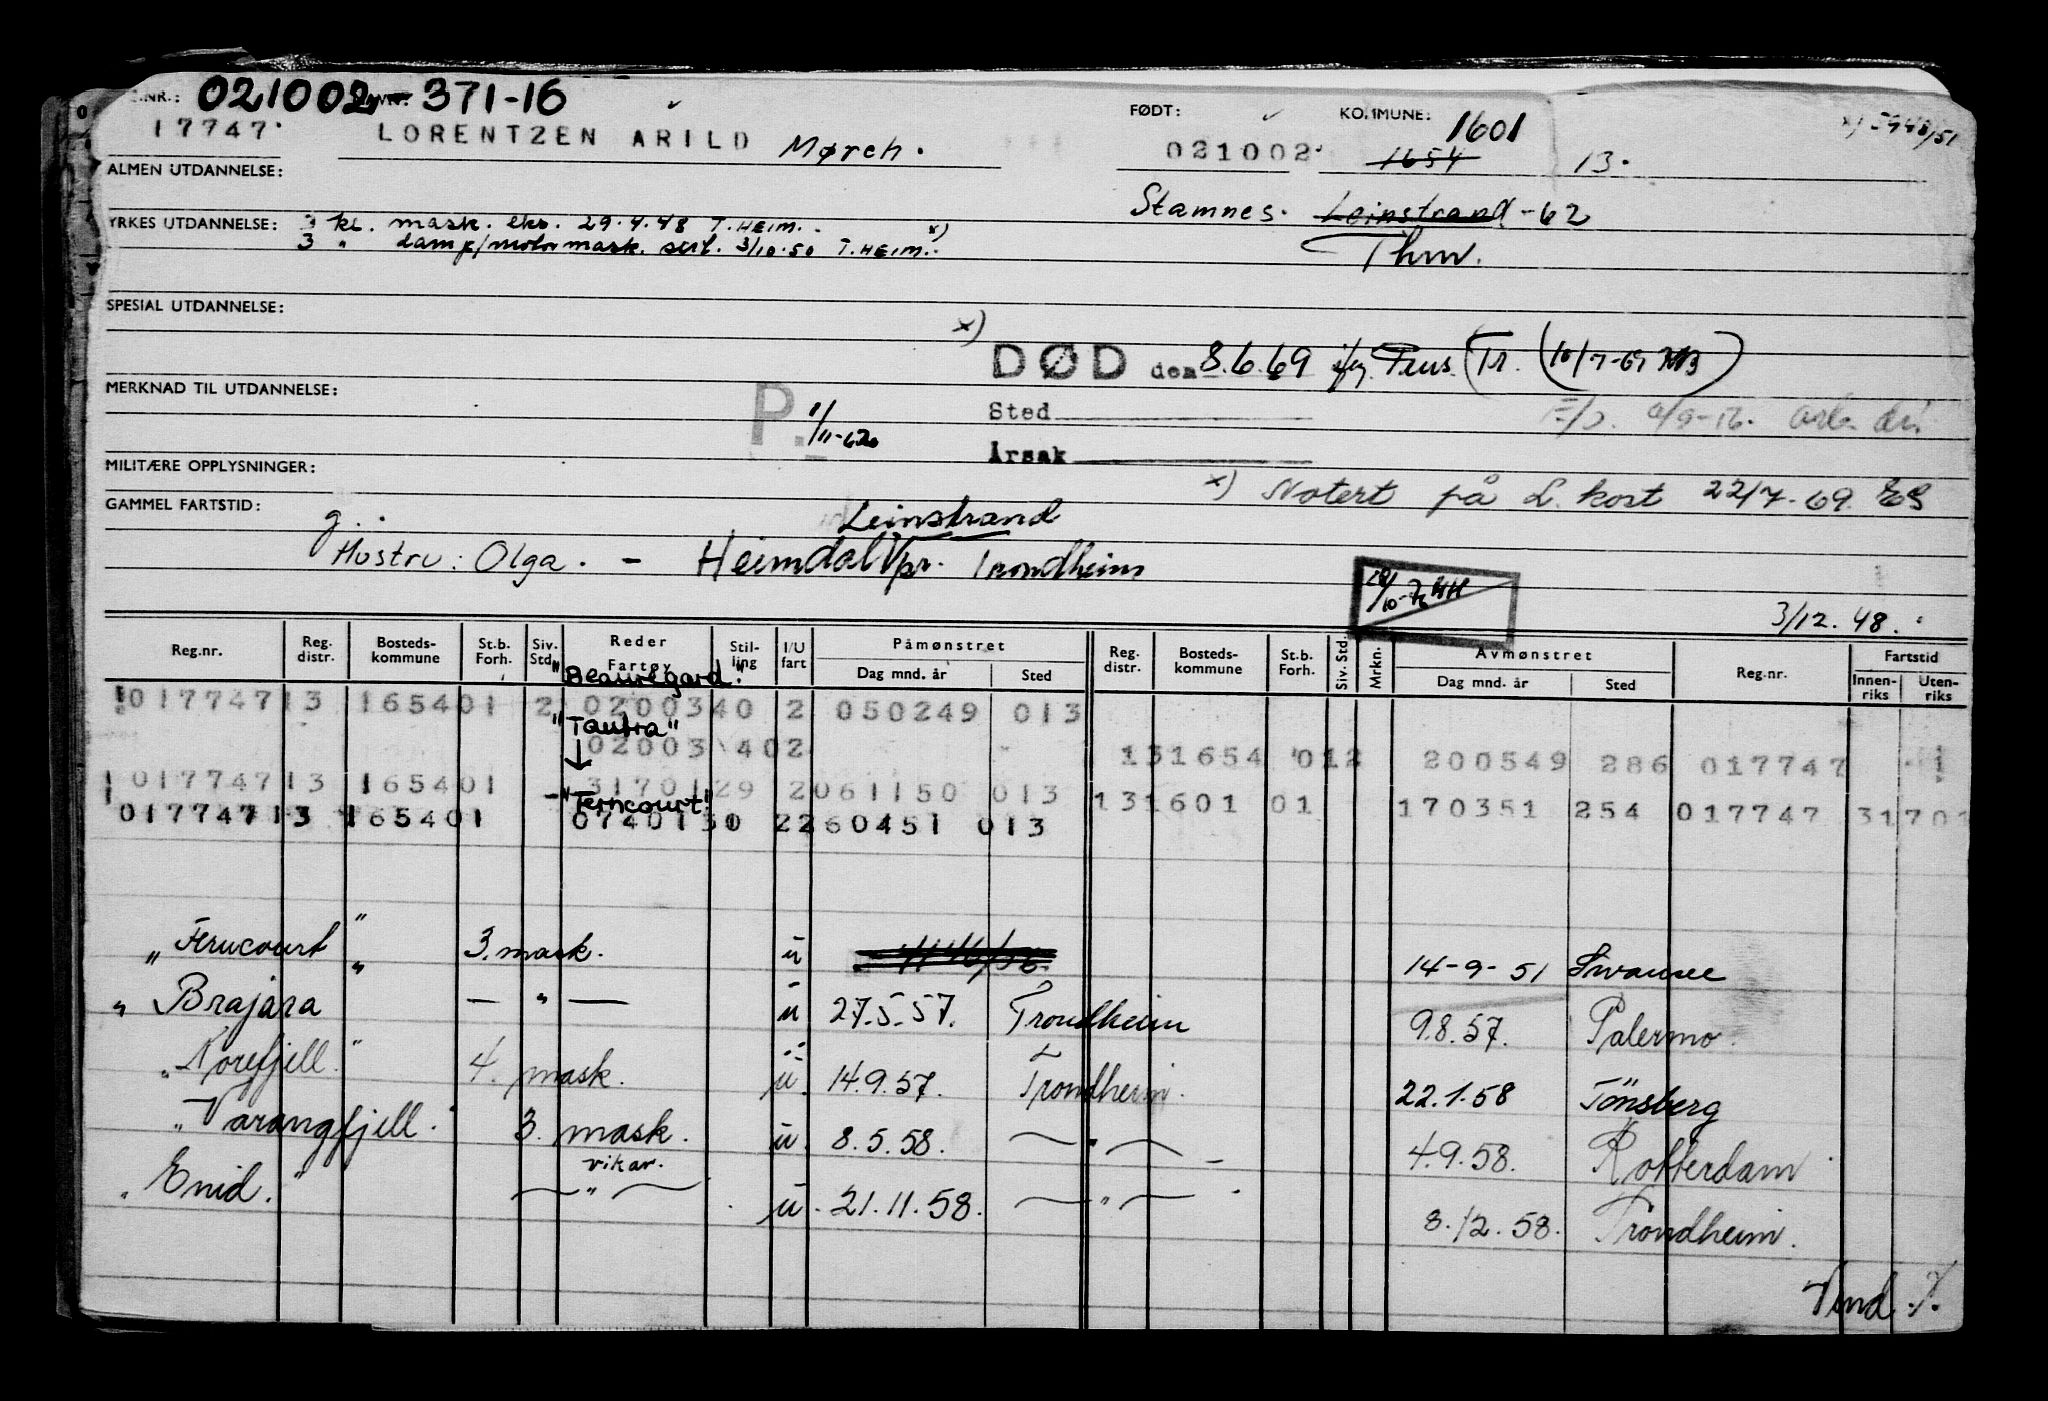 021002-371-16
NR.: NAVN: FØDT: KOMMUNE: 1601
17747 LORENTZEN ARILD Mørch. 021002 1654 13.
ALMEN UTDANNELSE:
Stamnes. Leinstrand -62
YRKES UTDANNELSE: kl. mask. eks. 29.4.48 T.HEIM. x)
3 " damp/motormask. sert. 3/10.50 T.HEIM.
Thm.
SPESIAL UTDANNELSE:
x)
DØD den 8.6.69 Tr. (10/7-69
MERKNAD TIL UTDANNELSE:
P. 1/11-62
Sted
Årsak
MILITÆRE OPPLYSNINGER:
x) Notert på L. kort 22/7-69. ES
GAMMEL FARTSTID:
g..
Leinstrand
Hustru: Olga. - Heimdal pr. Trondheim
3/12.48.
Reg.nr. Reg. distr. Bosteds-kommune St.b. Forh. Siv. Std. Reder Fartøy Stil-ling I/U fart Påmønstret Dag mnd. år Sted Reg. distr. Bosteds-kommune St.b. Forh. Siv. Std. Mrkn. Avmønstret Dag mnd. år Sted Reg.nr. Fartstid Innen-riks Uten-riks
"Beauregard"
017747 13 1654 01 2 0200340 2 050249 013
"Tautra"
02003 402 131654 012 200549 286 017747 1
017747 13 1654 01 3170129 2 061150 013
"Ferncourt" 131601 01 170351 254 017747 31701
017747 13 1654 01 0740130 2 260451 013
"Ferncourt" 3. mask. u 14-9-51 Swansee
"Brajara" — " — u 27.5.57. Trondheim 9.8.57. Palermo.
"Norefjell" 4. mask. u. 14.9.57. Trondheim. 22.1.58 Tönsberg
"Varangfjell" 3. mask. u. 8.5.58. — " — 4.9.58. Rotterdam
vikar.
"Enid." — " — u. 21.11.58. — " — 8.12.58. Trondheim.
Vend